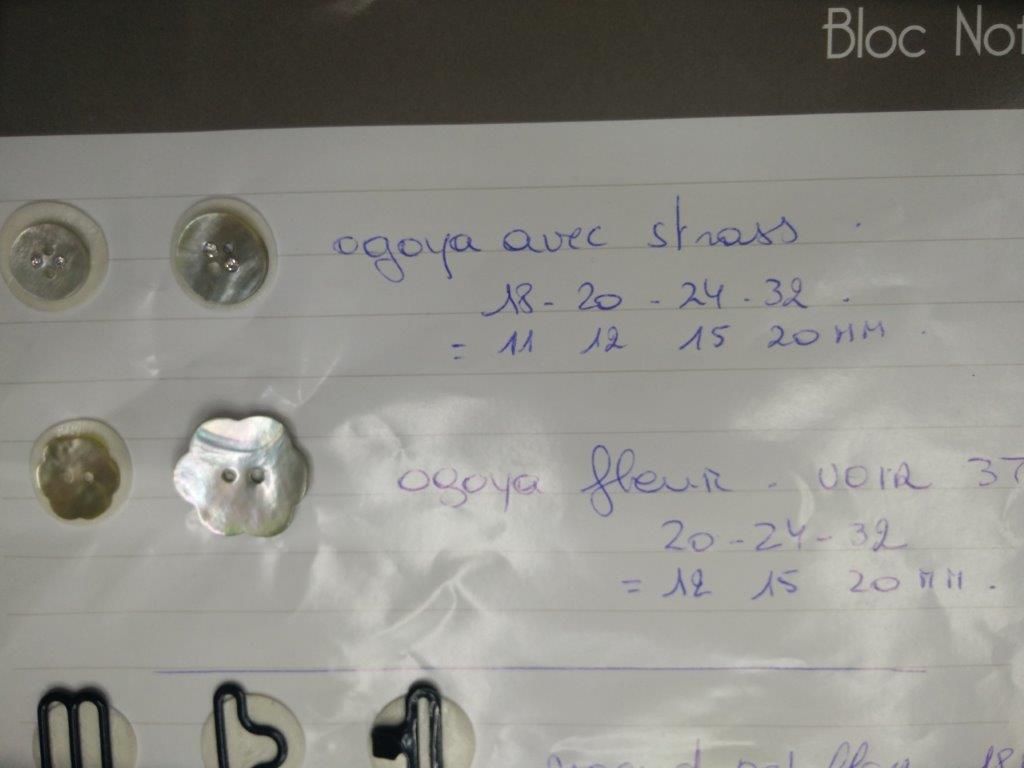 Bloc Not
ogoya avec strass.
18 - 20 - 24 - 32.
= 11 12 15 20 mm.
ogoya fleur. VOIR 3T
20 - 24 - 32
= 12 15 20 mm.